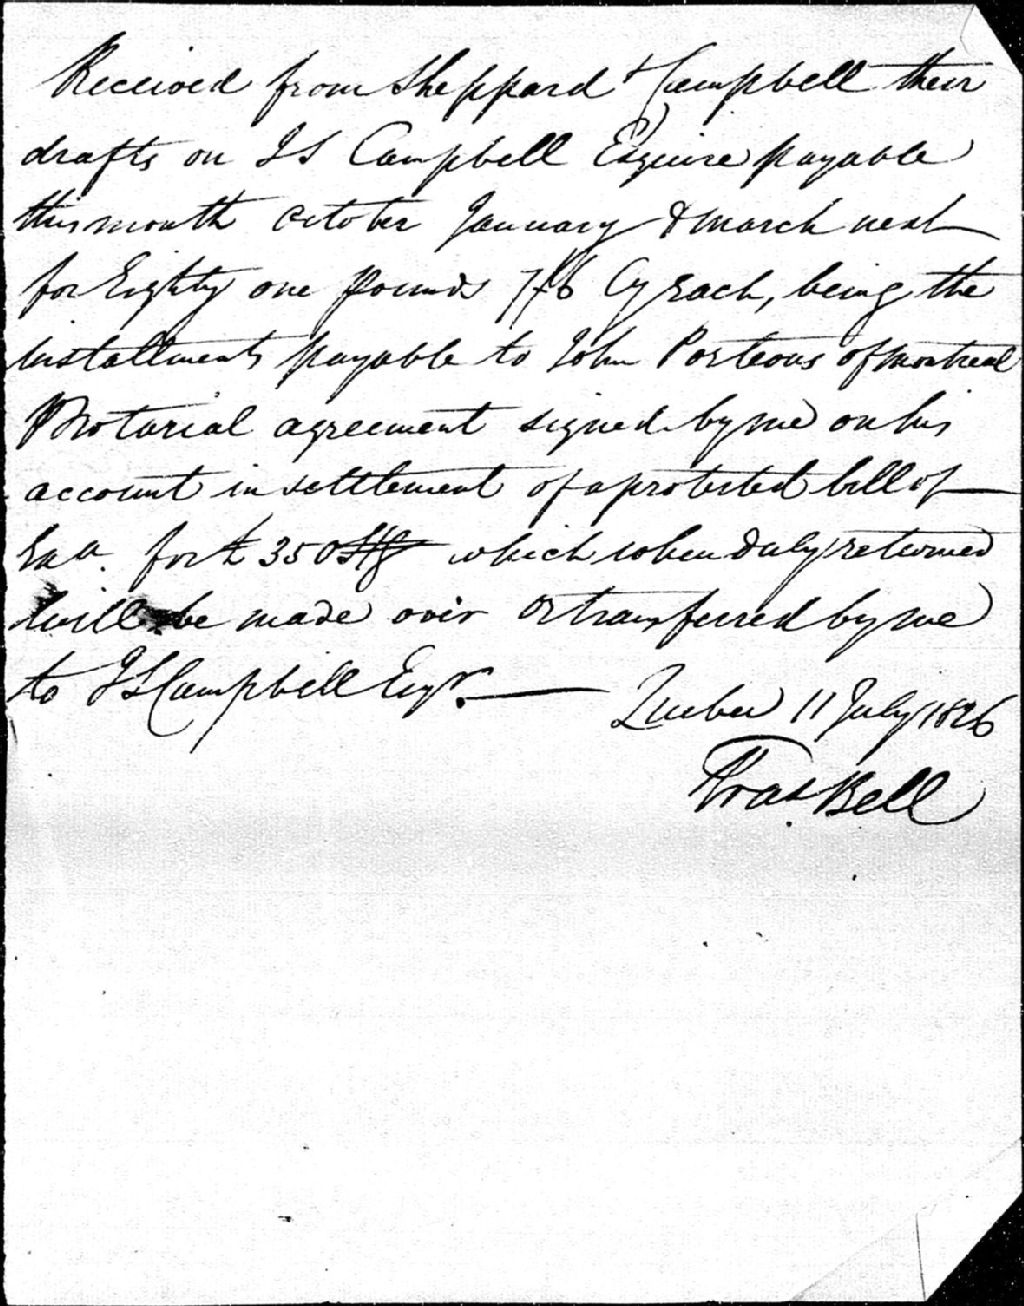 Received from Sheppard & Campbell their
drafts on JS Campbell Esquire payable
this month October January & March next
for Eighty one Pounds 7/6 Cy Each, being the
installments payable to John Porteous of Montreal
Notarial agreement signed by me on his
account in settlement of a protested bill of
Exa. for £ 350 Stg which when duly returned
will be made over or transferred by me
to JS Campbell Esqr.
Quebec 11 July 1826
Fras Bell